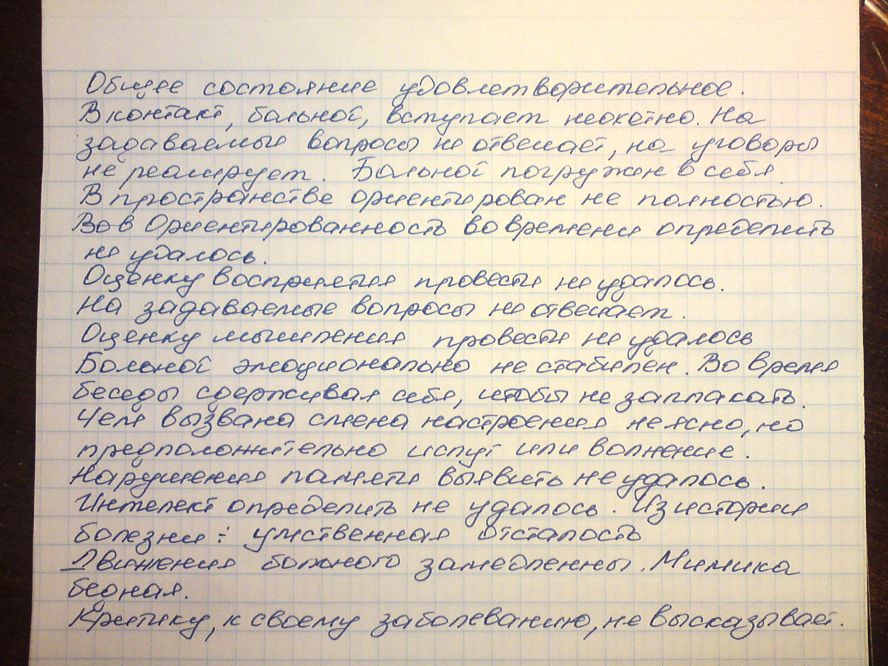 Общее состояние удовлетворительное.
В контакт, больной, вступает неохотно. На
задаваемые вопросы не отвечает, на уговоры
не реагирует. Больной погружен в себя.
В пространстве ориентирован не полностью.
Во в Ориентированность во времени определить
не удалось.
Оценку восприятия провести не удалось.
На задаваемые вопросы не отвечает.
Оценку мышления провести не удалось
Больной эмоционально не стабилен. Во время
беседы сдерживал себя, чтобы не заплакать.
Чем вызвана смена настроения не ясно, но
предположительно испуг или волнение.
Нарушения памяти выявить не удалось.
Интелект определить не удалось. Из истории
болезни: умственная отсталость
Движения больного замедленны. Мимика
бедная.
Критику, к своему заболеванию, не высказывает.